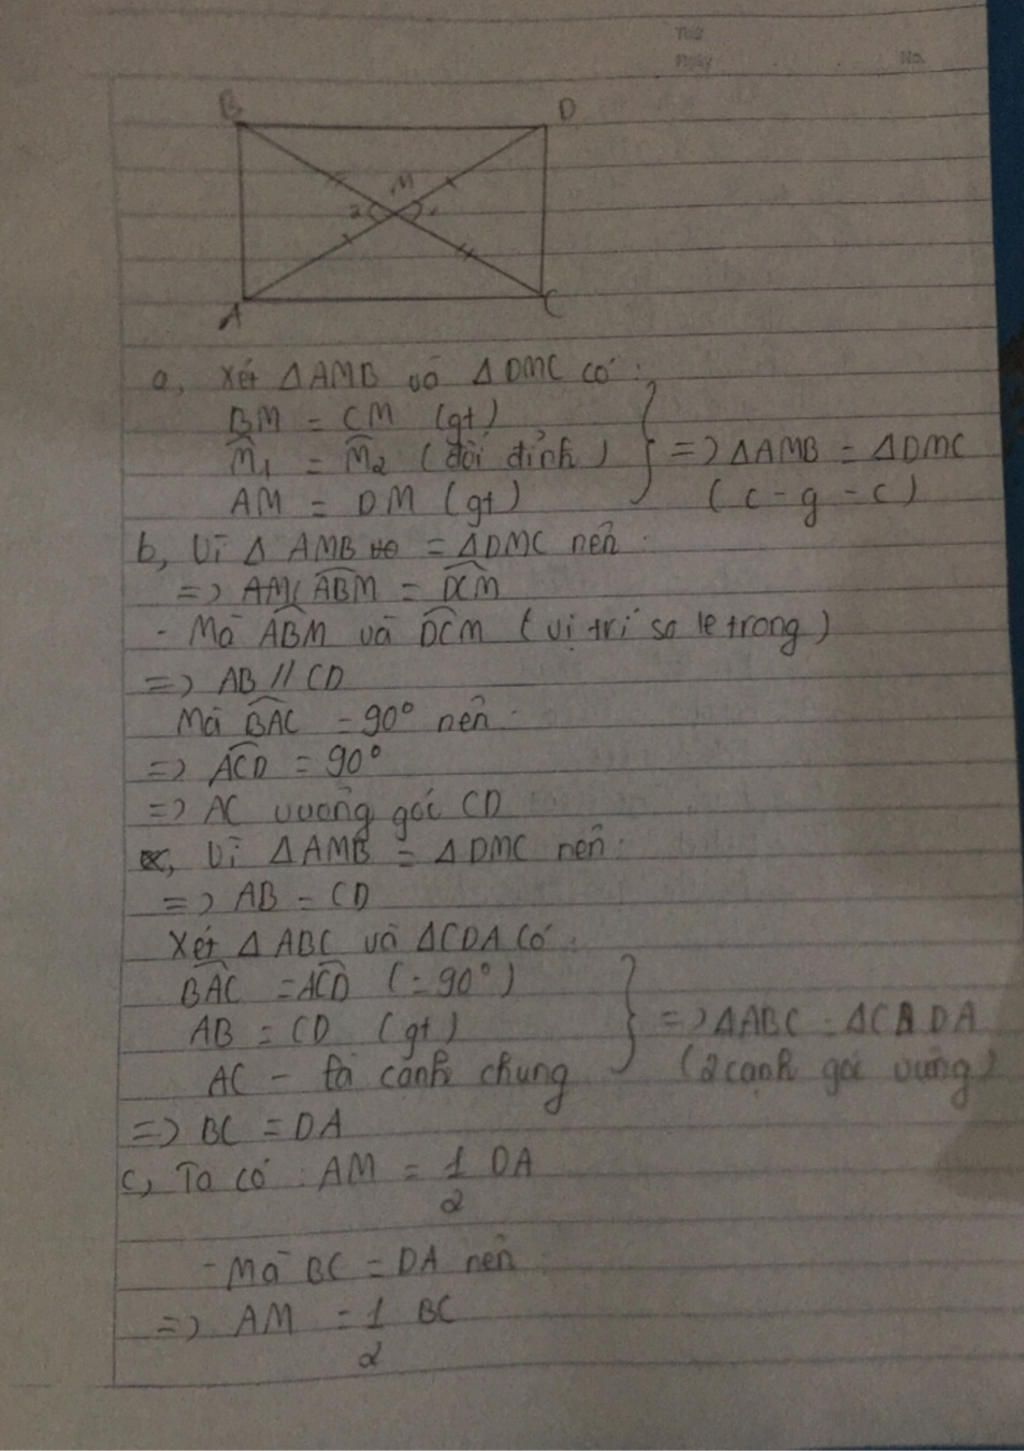 Thứ
Ngày No.
B D
M
2 1
A C
a, Xét ΔAMB và ΔDMC có :
BM = CM (gt)
M̂₁ = M̂₂ (đối đỉnh) } => ΔAMB = ΔDMC
AM = DM (gt) (c - g - c)
b, Vì Δ AMB = ΔDMC nên :
=> ABM̂ = DCM̂
- Mà ABM̂ và DCM̂ (vị trí so le trong)
=> AB // CD
Mà BAĈ = 90° nên :
=> ACD̂ = 90°
=> AC vuông góc CD
, Vì ΔAMB = ΔDMC nên :
=> AB = CD
Xét ΔABC và ΔCDA có :
BAĈ = ACD̂ (= 90°)
AB = CD (gt) } => ΔABC = ΔCDA
AC - là cạnh chung (2 cạnh góc vuông)
=> BC = DA
c, Ta có : AM = 1/2 DA
- Mà BC = DA nên
=> AM = 1/2 BC